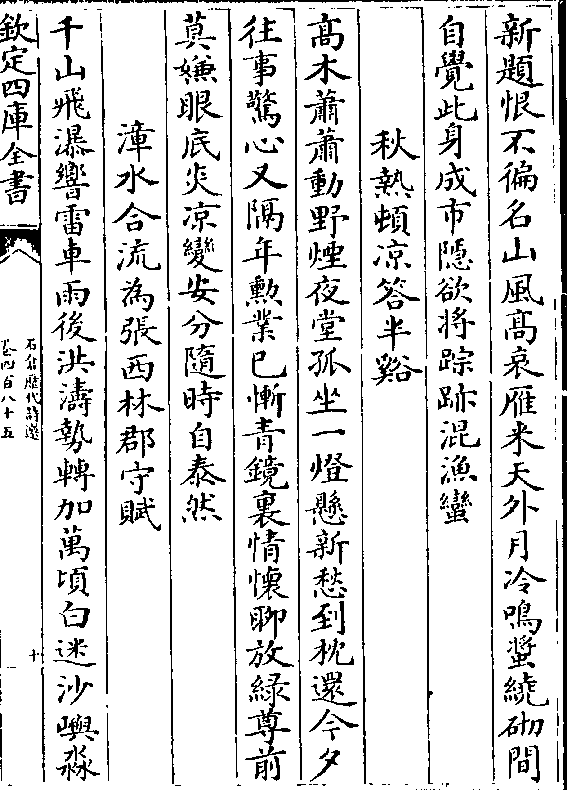 新題恨不徧名山風髙哀雁来天外月冷鳴螿繞砌間
自覺此身成市隱欲將踪跡混漁蠻
秋熱頓凉答半谿
髙木蕭蕭動野煙夜堂孤坐一燈懸新愁到枕還今夕
往事驚心又隔年勲業已慚青鏡裏情懐聊放緑尊前
莫嫌眼底炎凉變安分隨時自泰然
漳水合流為張西林郡守賦
千山飛瀑響雷車雨後洪濤勢轉加萬頃白迷沙嶼淼
欽定四庫全書
石倉歴代詩選
卷四百八十五
十